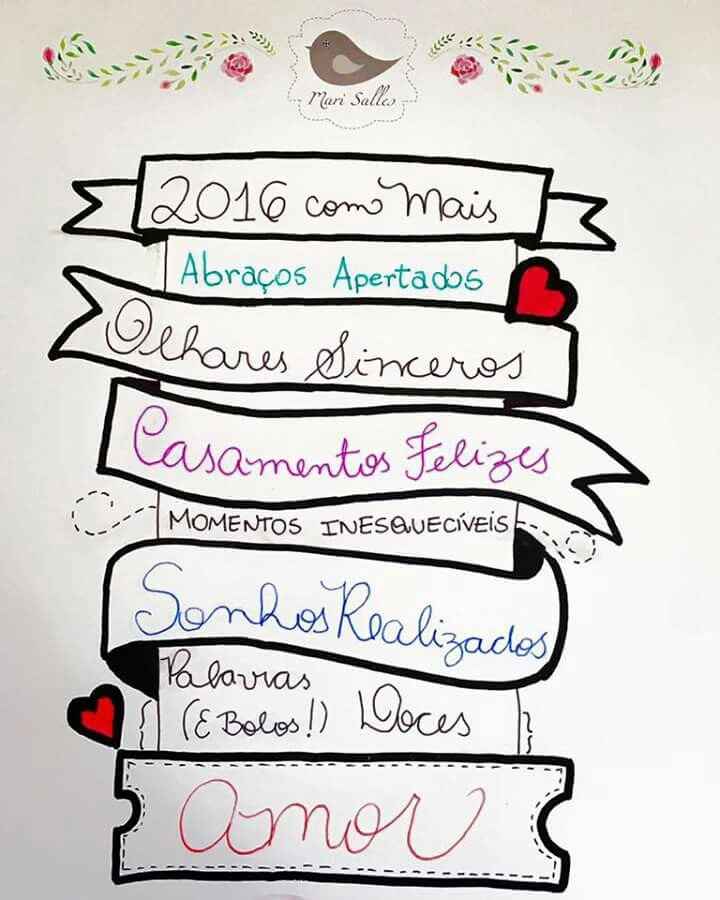 Mari Salles
2016 com Mais
Abraços Apertados
Olhares Sinceros
Casamentos Felizes
MOMENTOS INESQUECÍVEIS
Sonhos Realizados
Palavras
(E Bolos!) Doces
Amor